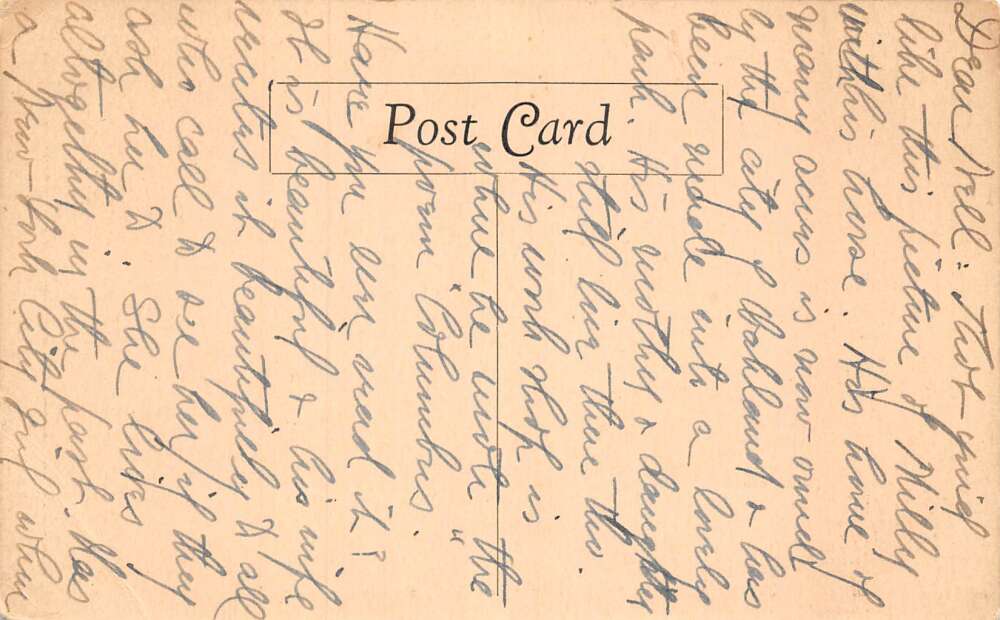 Post Card
Dear Nell: Thot you'd
like this picture of Milly
with his horse. His home of
many acres is now owned
by the city of Oakland & has
been made into a lovely
park. His mother & daughter
still live there tho.
His work shop is
where he wrote the
poem "Columbus."
Have you ever read it?
It is beautiful & his wife
recites it beautifully to all
who call to see her, if they
ask her to. She lives
altogether in the past. Was
a New York City girl when